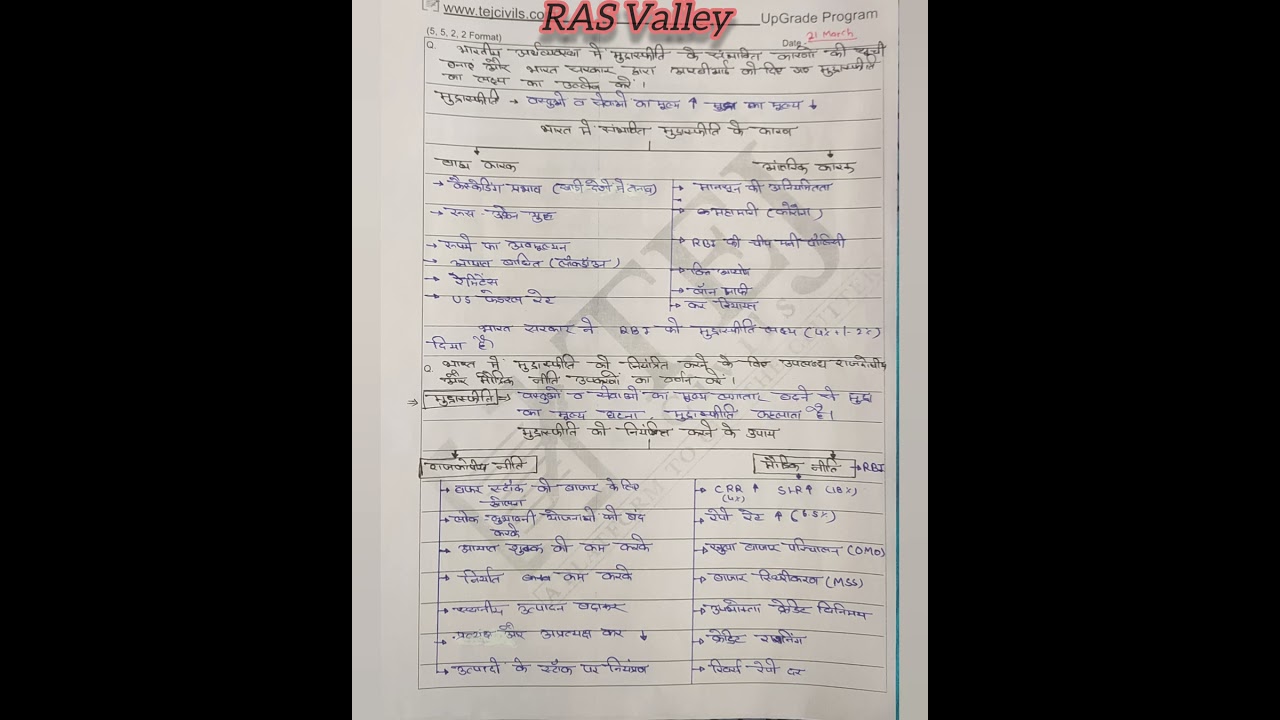 www.tejcivils.co
RAS Valley
UpGrade Program
(5, 5, 2, 2 Format)
Date: 21 March
Q. भारतीय अर्थव्यवस्था में मुद्रास्फीति के संभावित कारणों की सूची
बनाएं और भारत सरकार द्वारा आरबीआई को दिए गए मुद्रास्फीति
का लक्ष्य का उल्लेख करें।
मुद्रास्फीति → वस्तुओं व सेवाओं का मूल्य ↑ मुद्रा का मूल्य ↓
भारत में संभावित मुद्रास्फीति के कारण
बाह्य कारक
आंतरिक कारक
→ कैस्केडिंग प्रभाव (खाड़ी देशों में तनाव)
→ मानसून की अनियमितता
→ रूस-उक्रेन युद्ध
→ महामारी (कोरोना)
→ रुपये का अवमूल्यन
→ RBI की चीप मनी पॉलिसी
→ आयात बाधित
→ वित्त आयोग
→ रेमिटेंस
→ लॉन माफी
→ US फेडरल रेट
→ कर रियायत
भारत सरकार ने RBI को मुद्रास्फीति लक्ष्य (4% +/- 2%)
दिया है।
Q. भारत में मुद्रास्फीति को नियंत्रित करने के लिए उपलब्ध राजकोषीय
और मौद्रिक नीति उपकरणों का वर्णन करें।
⇒ मुद्रास्फीति ⇒ वस्तुओं व सेवाओं का मूल्य लगातार बढ़ने से मुद्रा
का मूल्य घटना, मुद्रास्फीति कहलाता है।
मुद्रास्फीति को नियंत्रित करने के उपाय
राजकोषीय नीति
मौद्रिक नीति → RBI
→ बफर स्टॉक को बाजार के लिए
खोलना
→ CRR ↑ SLR ↑ (18%)
(4%)
→ लोक-लुभावनी योजनाओं को बंद
करके
→ रेपो रेट ↑ (6.5%)
→ आयात शुल्क को कम करके
→ खुला बाजार परिचालन (OMO)
→ निर्यात कम करके
→ बाजार स्थिरीकरण (MSS)
→ स्थानीय उत्पादन बढ़ाकर
→ उपभोक्ता क्रेडिट विनियमन
→ प्रत्यक्ष और अप्रत्यक्ष कर ↓
→ क्रेडिट राशनिंग
→ उत्पादों के स्टॉक पर नियंत्रण
→ रिवर्स रेपो दर